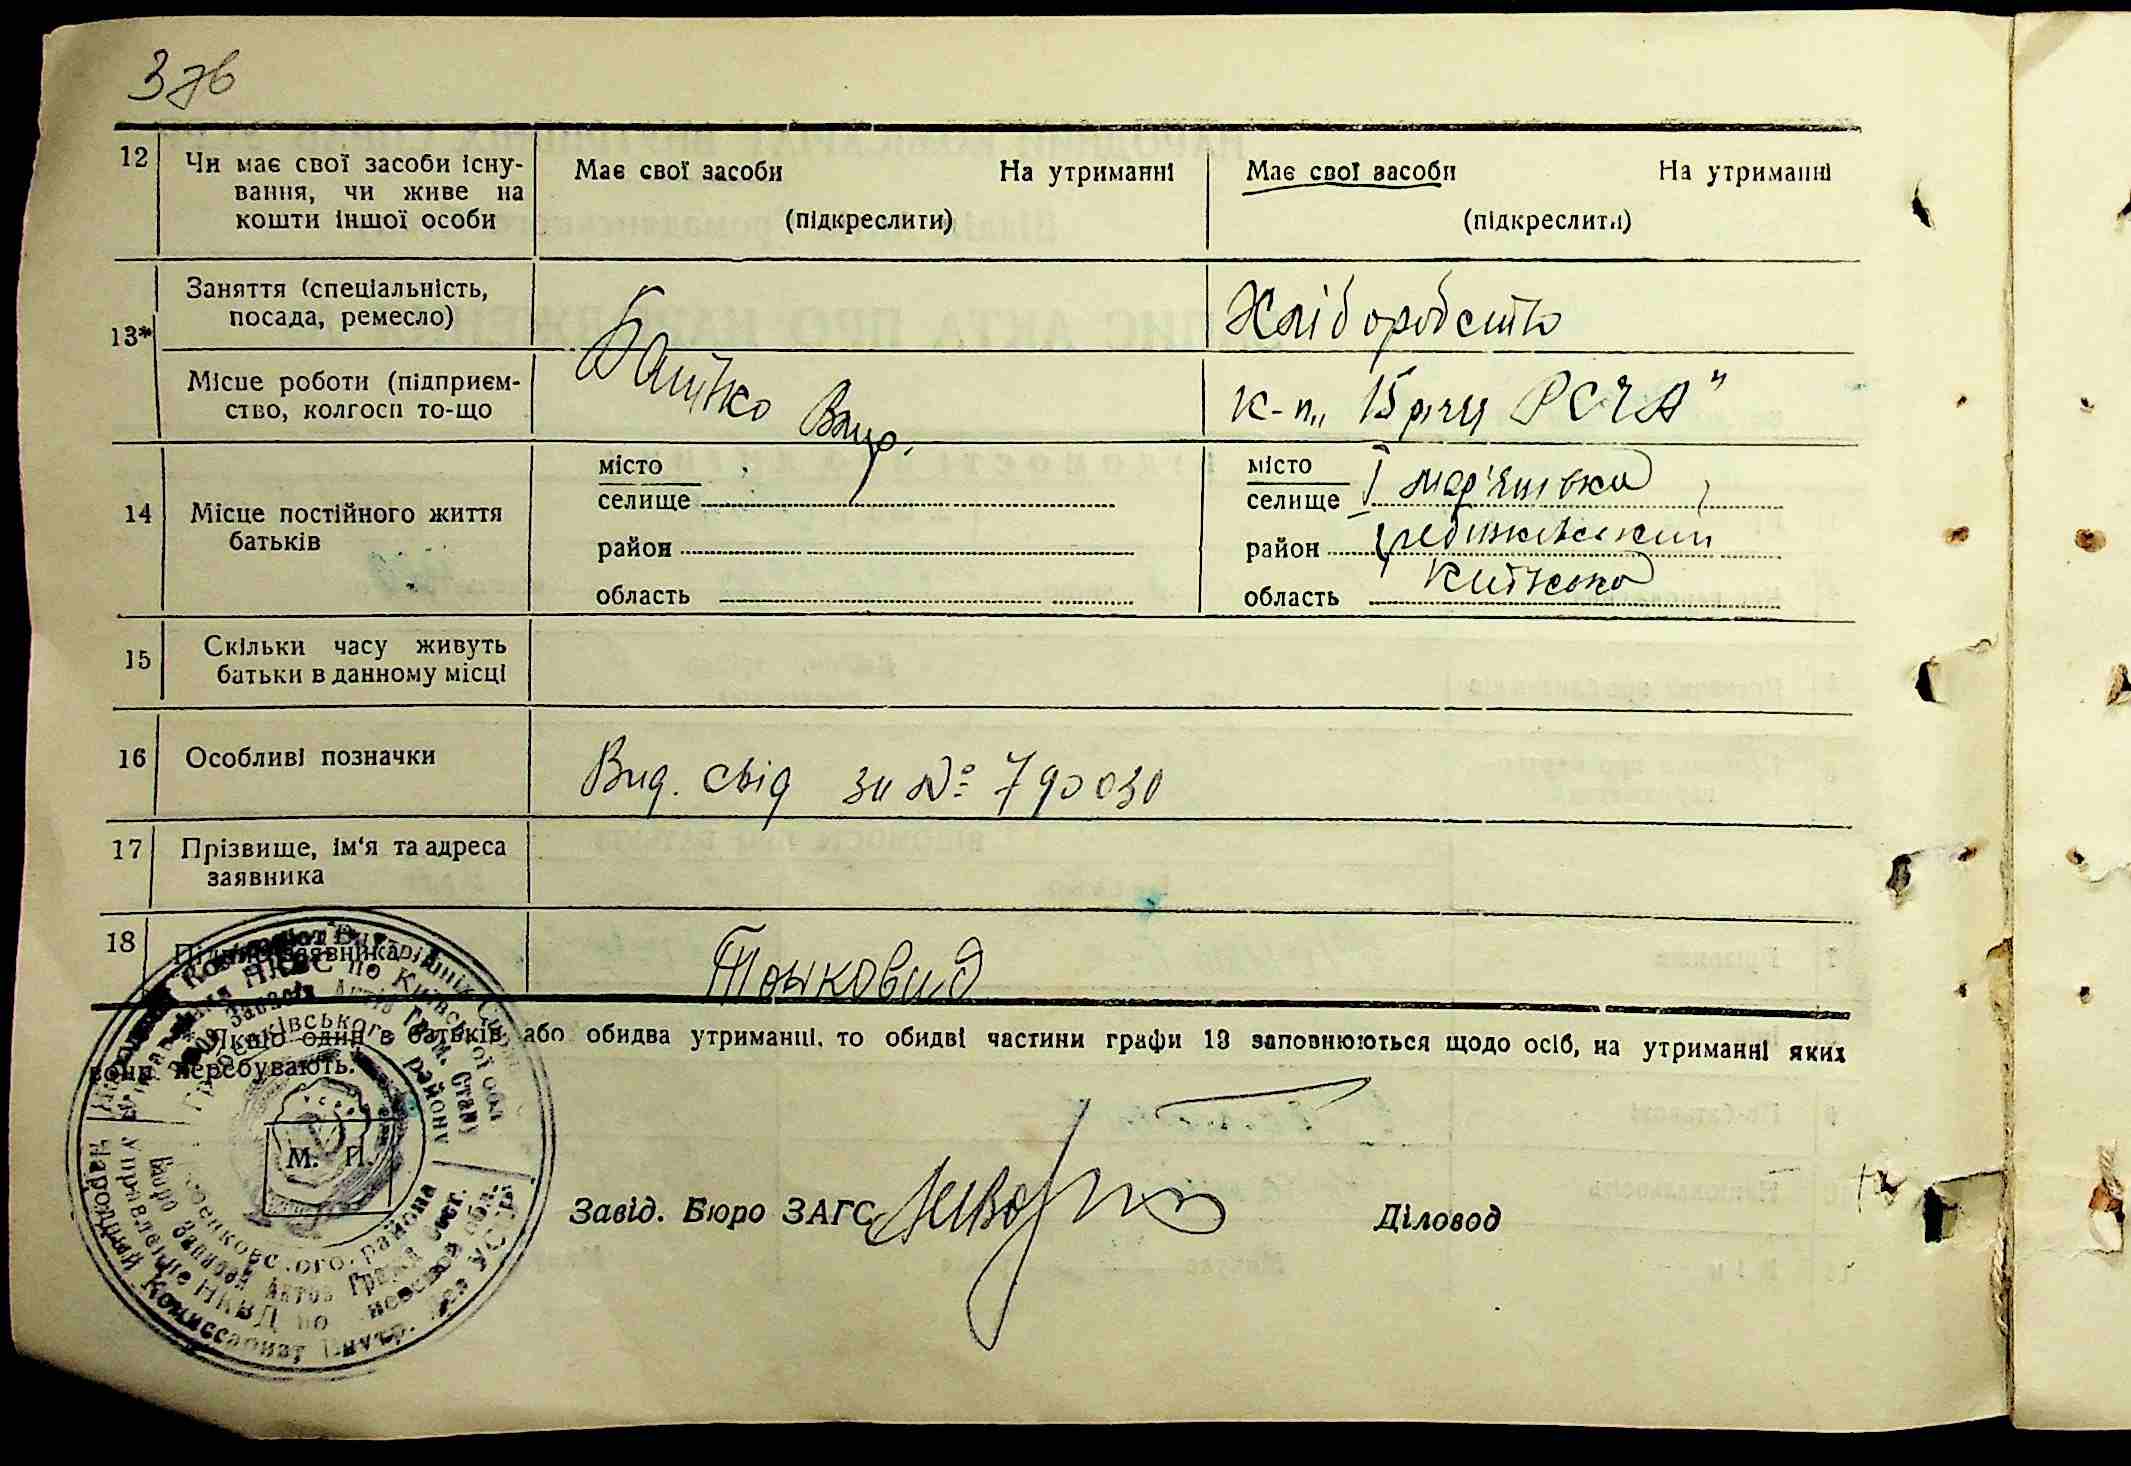 3зв
12 Чи має свої засоби існу-
вання, чи живе на
кошти іншої особи
Має свої засоби На утриманні
(підкреслити)
Має свої засоби На утриманні
(підкреслити)
13*
Заняття (спеціальність,
посада, ремесло)
Хліборобство
Місце роботи (підприєм-
ство, колгосп то-що
Батько
к-п „15 річч РСЧА"
14 Місце постійного життя
батьків
місто
селище
район
область
місто
селище Мар'янівка
район Гребінківський
область Київська
15 Скільки часу живуть
батьки в данному місці
16 Особливі позначки
Вид. свід за № 790030
17 Прізвище, ім'я та адреса
заявника
18 Підпис заявника
Якщо один з батьків або обидва утриманці, то обидві частини графи 13 заповнюються щодо осіб, на утриманні яких
вони перебувають.
М. П.
Завід. Бюро ЗАГС
Діловод
НКВС по Київської обл
Бюро Записів Актів Гром. Стану
району
района
Бюро Записей Актов Гражд. сост.
Управление НКВД по
Народный Комиссариат Внутр. Дел УССР